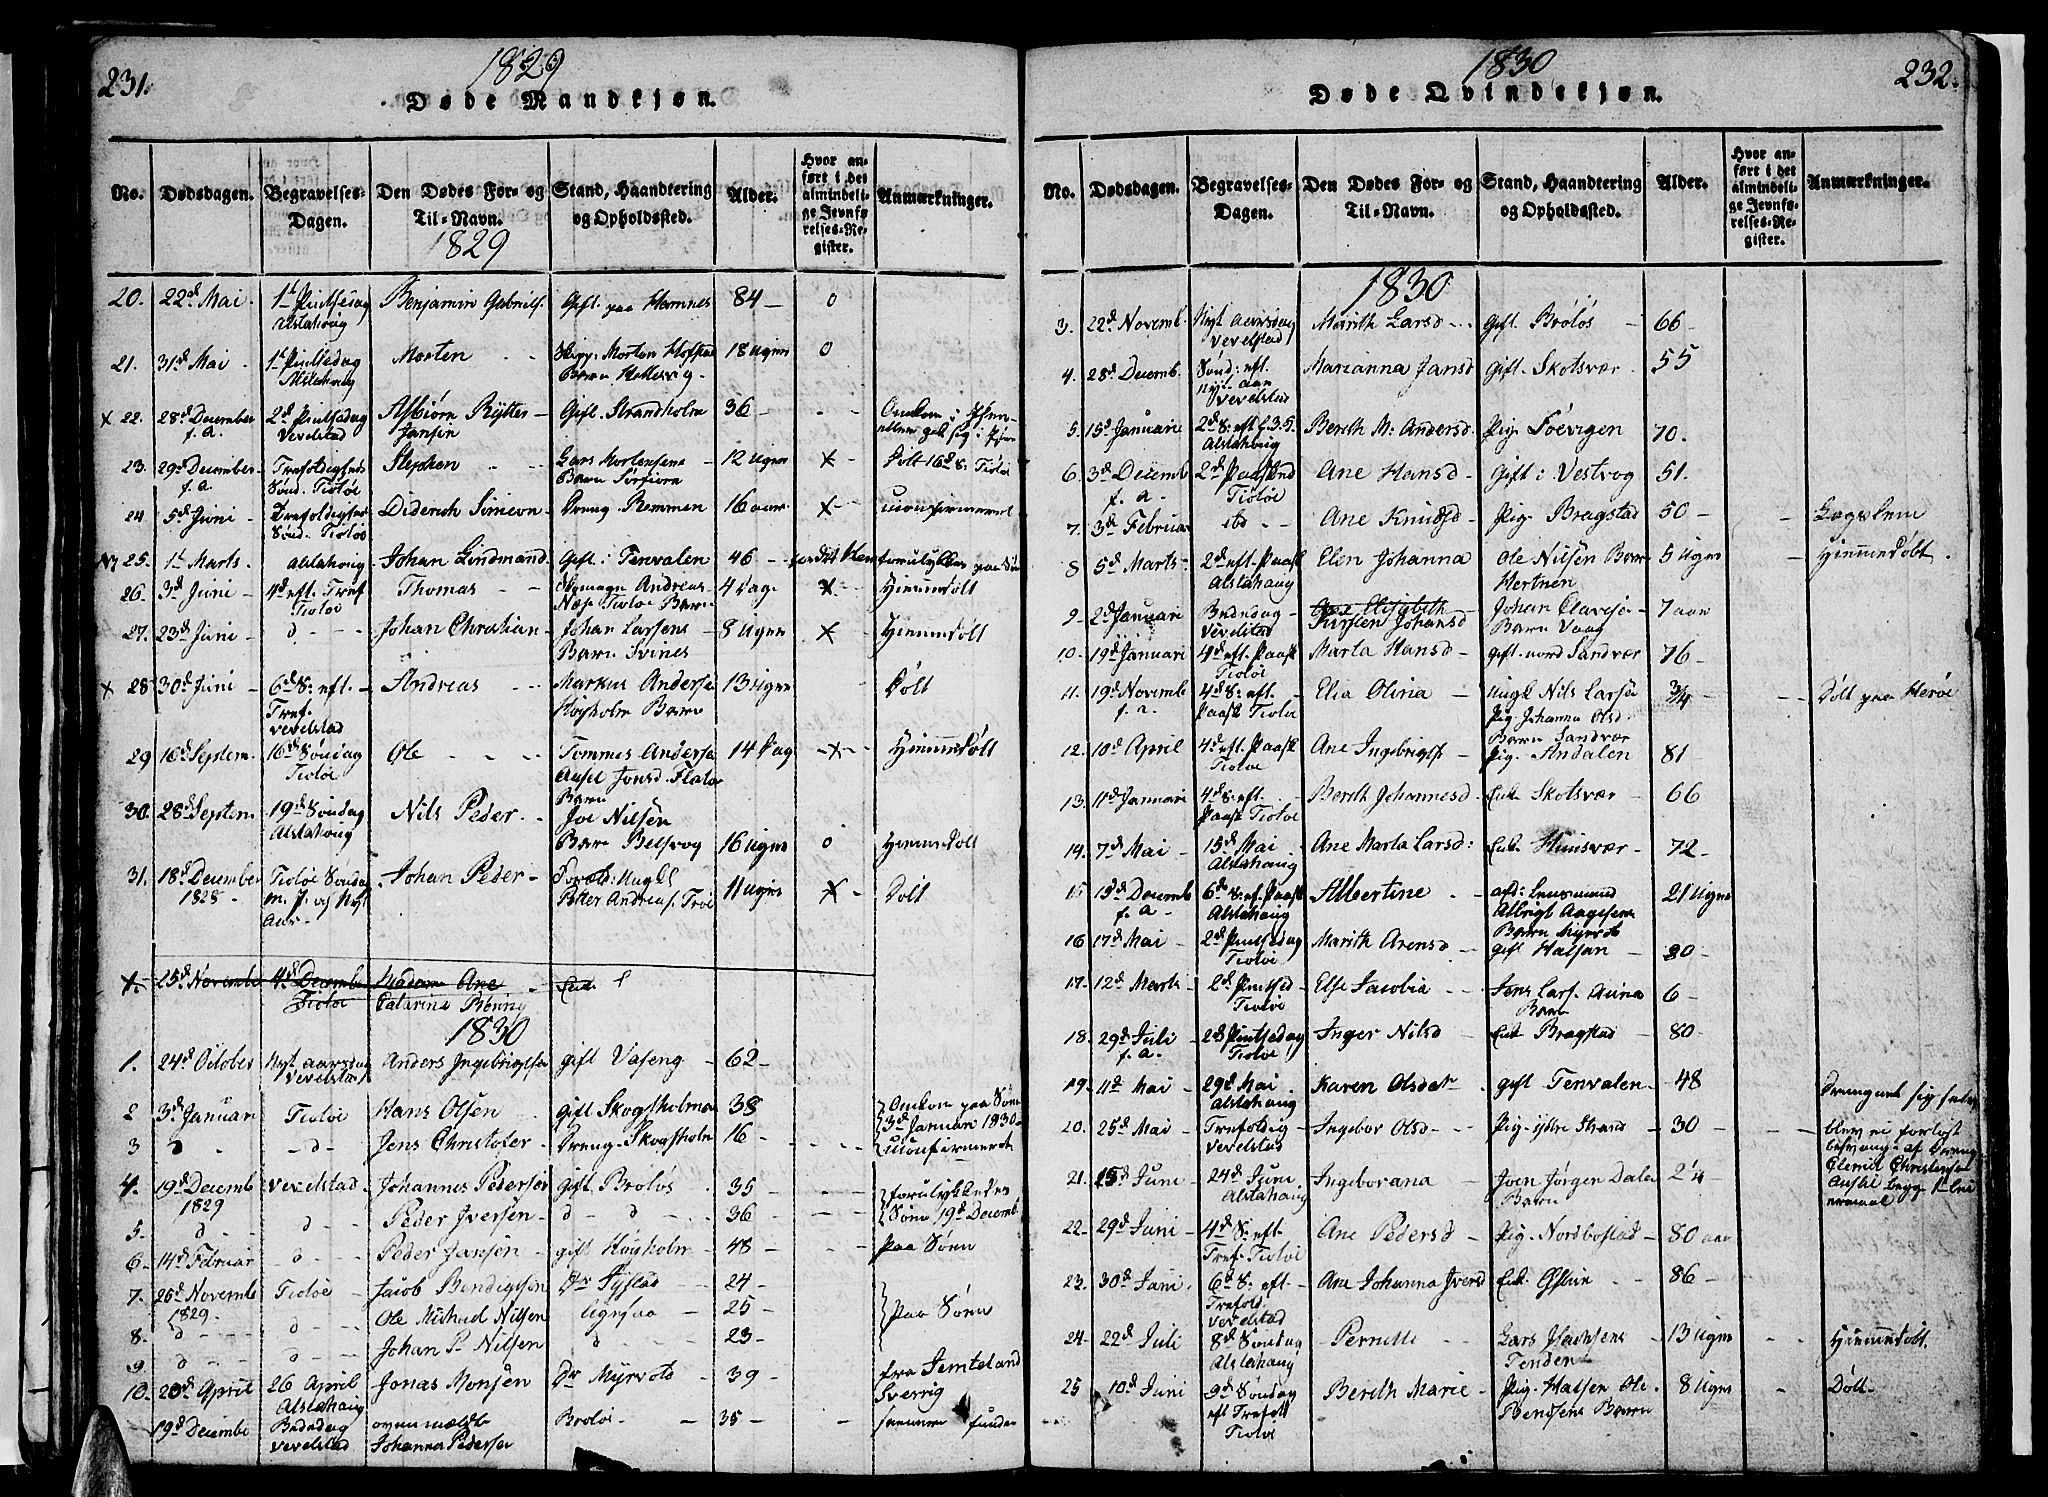 231.
1829
Døde Mandkjøn.
No. Dødsdagen. Begravelses-Dagen. Den Dødes For- og Til-Navn. Stand, Haandtering og Opholdssted. Alder. Hvor anført i det almindelige Jevnførelses-Register. Anmærkninger.
1829
20. 22d Mai. 1t Pintsedag Alstahoug Benjamin Gabriels. Gift. paa Hamnes 84 — 0
21. 31d Mai 1t Pintsedag Alstahoug Morten Morten Hofstad Barn 18 Uger 0
x 22. 28d December f. a. 2d Pintsedag Vevelstad Asbiørn Rytter Jansen Gift. Strandholm 36 —
23. 29d December f. a. Trefoldigheds Sønd. Tiøtøe Stephen Lars Mortensens Barn 12 Uger x Døbt 16d S. Tiøtøe
24 5d Juni Trefoldighed Sønd. Tiøtøe Diderich Simeon Dreng Remmen 16 aar x uconfirmeret
25. 1t Marts. Alstahoug Johan Lindmand. Gift. Tenvalen 46
26. 3d Juni 4d eft. Tref. Tiøtøe Thomas Andreas Næs Tiøtøe Barn 4 Dage x Hiemmedøbt
27. 23d Juni d Johan Christian Johan Larsens Barn Svines 8 Uger x Hiemmedøbt
x 28 30d Juni 6d S. eft. Tref. Vevelstad Andreas Markus Anderse Høyholm Barn 13 uger Døbt
29 16d Septem. 16d Søndag Tiøtøe Ole Tommes Anderse Jonsd. Flatøe Barn 14 Dag x Hiemmedøbt
30. 28d Septem 19d Søndag Alstahoug Nils Peder Joe Nilsen Barn Belsvog 16 Uger 0 Hiemmedøbt
31. 18d December 1828 Tiøtøe Søndag m. J. og Nyt Aar Johan Peder Ungkl Petter Andreas. Trøe 11 Uger x Døbt
x 25d Novembe 4d Decembe Tiøtøe Madame Ane Catarina Bening Enk.
1830
1. 24d October Nyt aarsdag Vevelstad Anders Ingebrigtsen gift Vaseng 62
2 3d Januar Tiøtøe Hans Olsen gift Skogsholmen 38 Omkom paa Søen 3d Januari 1830
3 d d Jens Christofer Dreng Skogsholm 16 Uconfirmeret
4. 19d Decemb 1829 Vevelstad Johannes Pedersen gift Brøløs 35 forulykkedes Søen 19d Decemb
5. d d Peder Iversen d d 36
6. 14d Februar d Peder Jansen gift Høyholm 48 paa Søen
7. 26d Novemb 1829. Tiøtøe Jacob Bendigtsen 24
8. d d Ole Michael Nilsen 25 paa Søen
9 d d Johan P. Nilsen d 23
10. 20d April 26 April Alstahoug Jonas Monsen Myrvold 39 fra Jemteland Sverrig
19d Decembe Bededag Vevelstad ovenmeldte Johannes Pedersen Brøløs 35 funden
1830
232.
Døde Qvindekjøn.
No. Dødsdagen. Begravelses-Dagen. Den Dødes For- og Til-Navn. Stand, Haandtering og Opholdssted. Alder. Hvor anført i det almindelige Jevnførelses-Register. Anmærkninger.
1830
3. 22d Novemb. Nyt Aarsdag Vevelstad Marith Larsd gift Brøløs 66
4. 28d Decemb. Sønd: eft. nyt aar Vevelstad Marianna Jansd gift. Skotsvær 55
5. 15d Januari Alstahoug Berith M. Andersd. Pig. Søevigen 70.
6. 3d Decemb f. a. 2d Paaskd Tiøtøe Ane Hansd Gift i Vestvog 51.
7. 3d Februar ibd Ane Knudsd Pig. Bragstad 50 Lægslem
8 5d Marts 2d eft. Paask Alstahaug Elen Johanna Ole Nilsen Barn Hertnen 5 Uger Hiemmedøbt.
9. 2d Januari Bededag Vevelstad Kirsten Johansd Johan Olavse Barn Vaag 7 aar
10. 19d Januari 4d eft. Paask Tiøtøe Marta Hansd gift. nord Sandvær 76
11. 19d Novemb f. a. 4d S. eft. Paask Tiøtøe Elia Olivia Ungk Nils Larse Pig. Johanna Olsd. Barn Sandvær 3/4 Døbt paa Herøe
12. 10d April 4d eft. Paask Tiøtøe Ane Ingebrigtsd Pig. Andalen 81
13. 11d Januari 4d S. eft. Paask Tiøtøe Berith Johannesd. Enk. Skotsvær 66
14. 7d Mai 15d Mai Alstahaug Ane Marta Larsd: Enk. Husvær 72
15 15d Decemb f. a. 6d S. eft. Paask Alstahaug Albertine afd: Lensmand Albrigt Aagesens Barn 21 Uger
16 17d Mai 2d Pintsedag Tiøtøe Marith Arensd gift Halsan 80
17. 12d Marts 2d Pintsed Tiøtøe Else Jacobia Jens Lars. Barn 6
18. 29d Juli f. a. 2d Pintsedag Tiøtøe Inger Nilsd Enk Bragstad 80
19. 11d Mai 29d Mai Alstahaug Karen Olsdat gift Tenvalen 48
20. 25d Mai Trefoldig Vevelstad Ingebor Olsd Pig. ydre Strand 30 blev ei forløst besvang. af Dreng Christensen
21. 15d Juni 24d Juni Alstahaug Ingeborana Joen Jørgen Dale Barn 2 1/4
22. 29d Juni 4d S. eft Tref. Tiøtøe Ane Pedersd Pig. Nordbostad 80 aar
23. 30d Juni 6d S. eft. Trefold. Vevelstad Ane Johanna Iversd Enk. 86
24. 22d Juli 8d Søndag Alstahaug Pernille Lars Isachsens Tenden 13 Uger Hiemmedøbt.
25 10d Juni 9d Søndag eft Trefold Tiøtøe Berith Marie Pig. Halsen Ole Bensens Barn 8 Uger Døbt